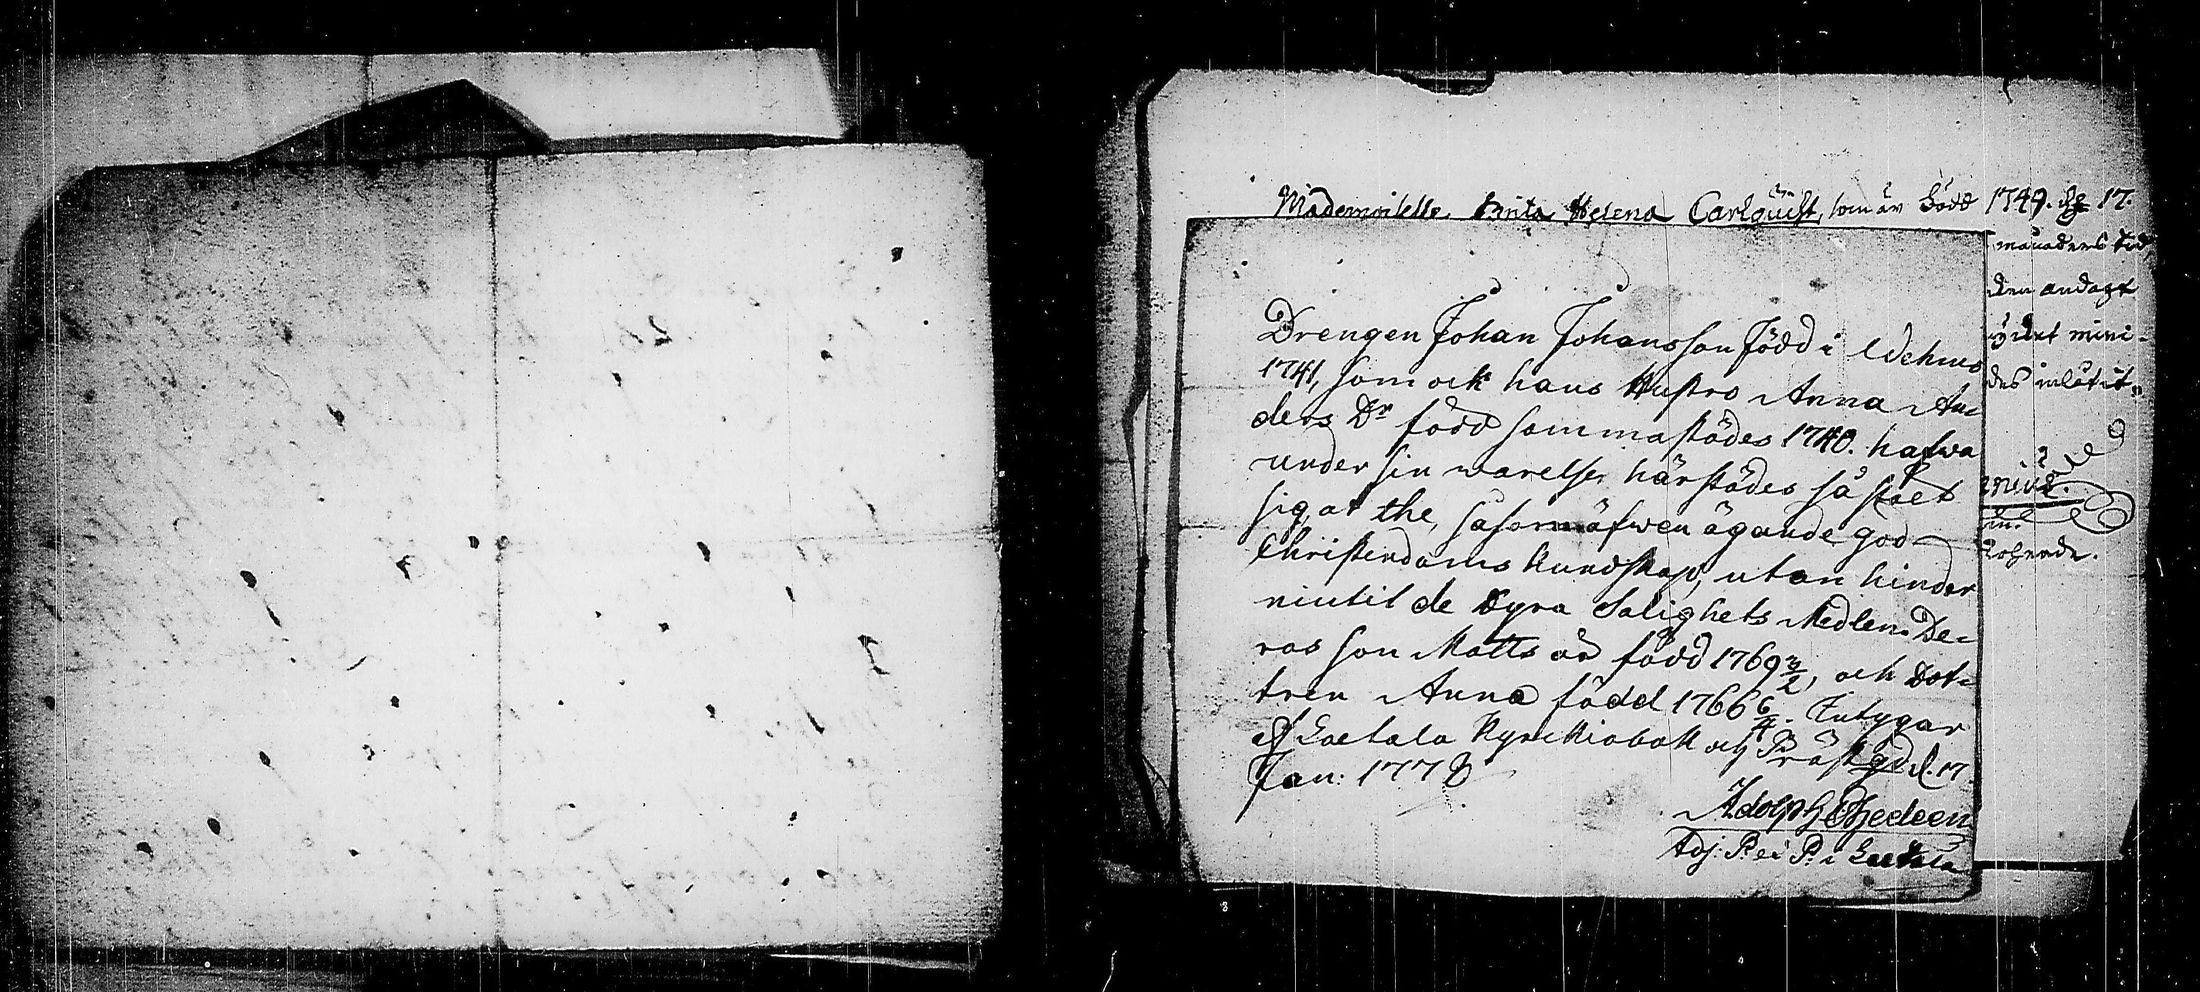 Mademoiselle Brita Helena Carlquist, som är född 1749. d. 17.
månaders tid,
den andagt
mini-
Drengen Johan Johansson född i Wehmo
1741, som ock hans Hustro Anna An-
ders Dr född sammastädes 1740. hafwa
under sin warelse härstädes så stält
sig, at the, såsom äfwen ägande god
Christendoms kundskap, utan hinder
niutit de dyra Salighets Medlen. De-
ras son Matts är född 1769 3/2, och Dot-
tren Anna född 1766 6/4. Intygar
af Loetala Kyrckiobok och Prästgd d. 17
Jan: 1778
Adolph Thedeen
Adj: P. et P. i Loetala